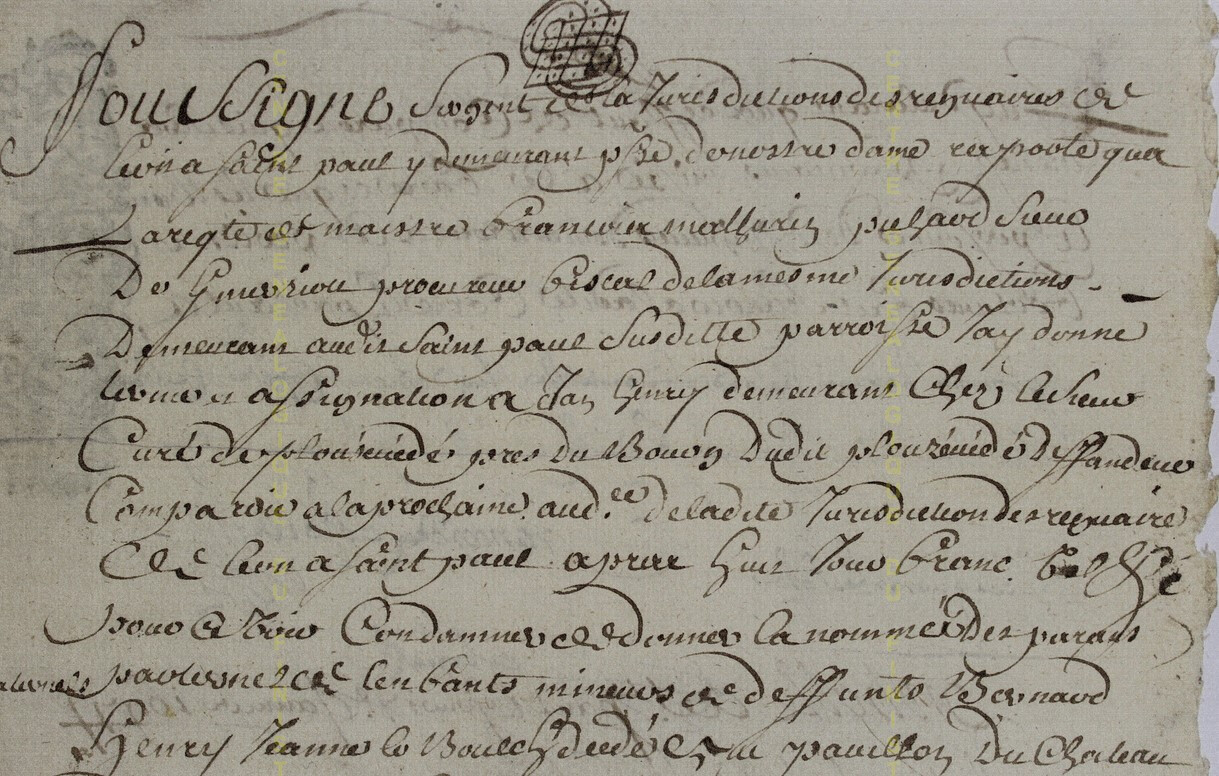 Soussigne Sergent de la Jurisdictions des reguaires de
leon a saint paul y demeurant psse de nostre dame rapporte que a
La reqte de maistre francoix mathurin pichard sieur
De procureur fiscal de la mesme Jurisdictions
Demeurant audit Saint paul Susditte parroisse Jay donne
terme et assignation a Jan henry demeurant Chez le sieur
Curé de plouzénédé pres du Bourg Dudit plouzénédé Deffandeur
Comparoir a la prochaine aud.ce de ladite Jurisdiction des reguaire
de leon a saint paul apprer huit Jour franc
pour Se voir Condamner de donner la nommée Des parants
paternel de lenfants mineurs de deffunts Bernard
Henry Jeanne le au pavillon Du Chateau